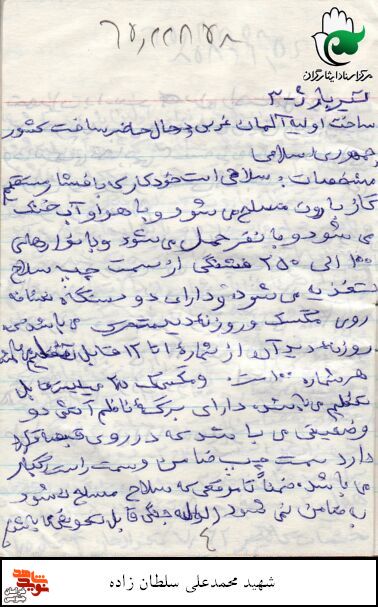 مرکز اسناد ایثارگران
تیربار ژ-۳
ساخت اولیه آلمان غربی در حال حاضر ساخت کشور
جمهوری اسلامی
مشخصات: سلاحی است خودکار که با فشار مستقیم
گاز باروت مسلح می شود و با هوا و آب خنک
می شود و با نفر حمل می شود و با نوارهای
۱۰۰ الی ۲۵۰ فشنگی از سمت چپ سلاح
تغذیه می شود و دارای دو دستگاه نشانه
روی مگسک و روزنه دید می باشد
روزنه دید آن از شماره ۱ تا ۱۲ قابل تنظیم می باشد
هر شماره ۱۰۰ و مگسک ۲۵ قابل
تنظیم می باشد. دارای برگه ناظم آتش دو
وضعیتی می باشد که در روی قبضه قرار
دارد سمت چپ ضامن و سمت راست رگبار
می باشد. ضمناً تا موقعی که سلاح مسلح نشود
به ضامن نمی شود لوله جنگی قابل تعویض می باشد
۴
شهید محمدعلی سلطان زاده